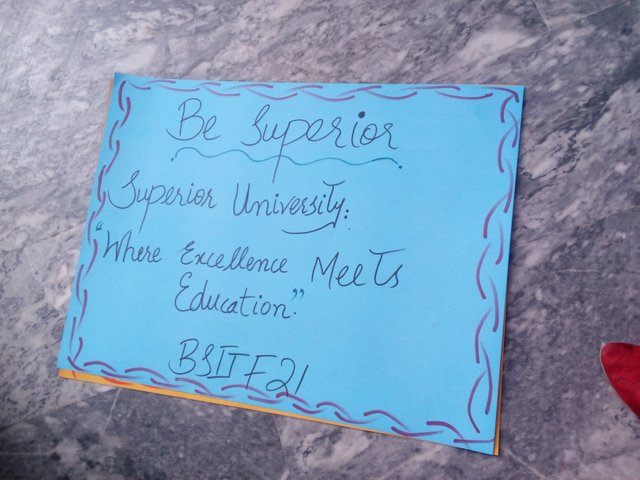 Be Superior
Superior University:
"Where Excellence Meets
Education."
BSIT F21